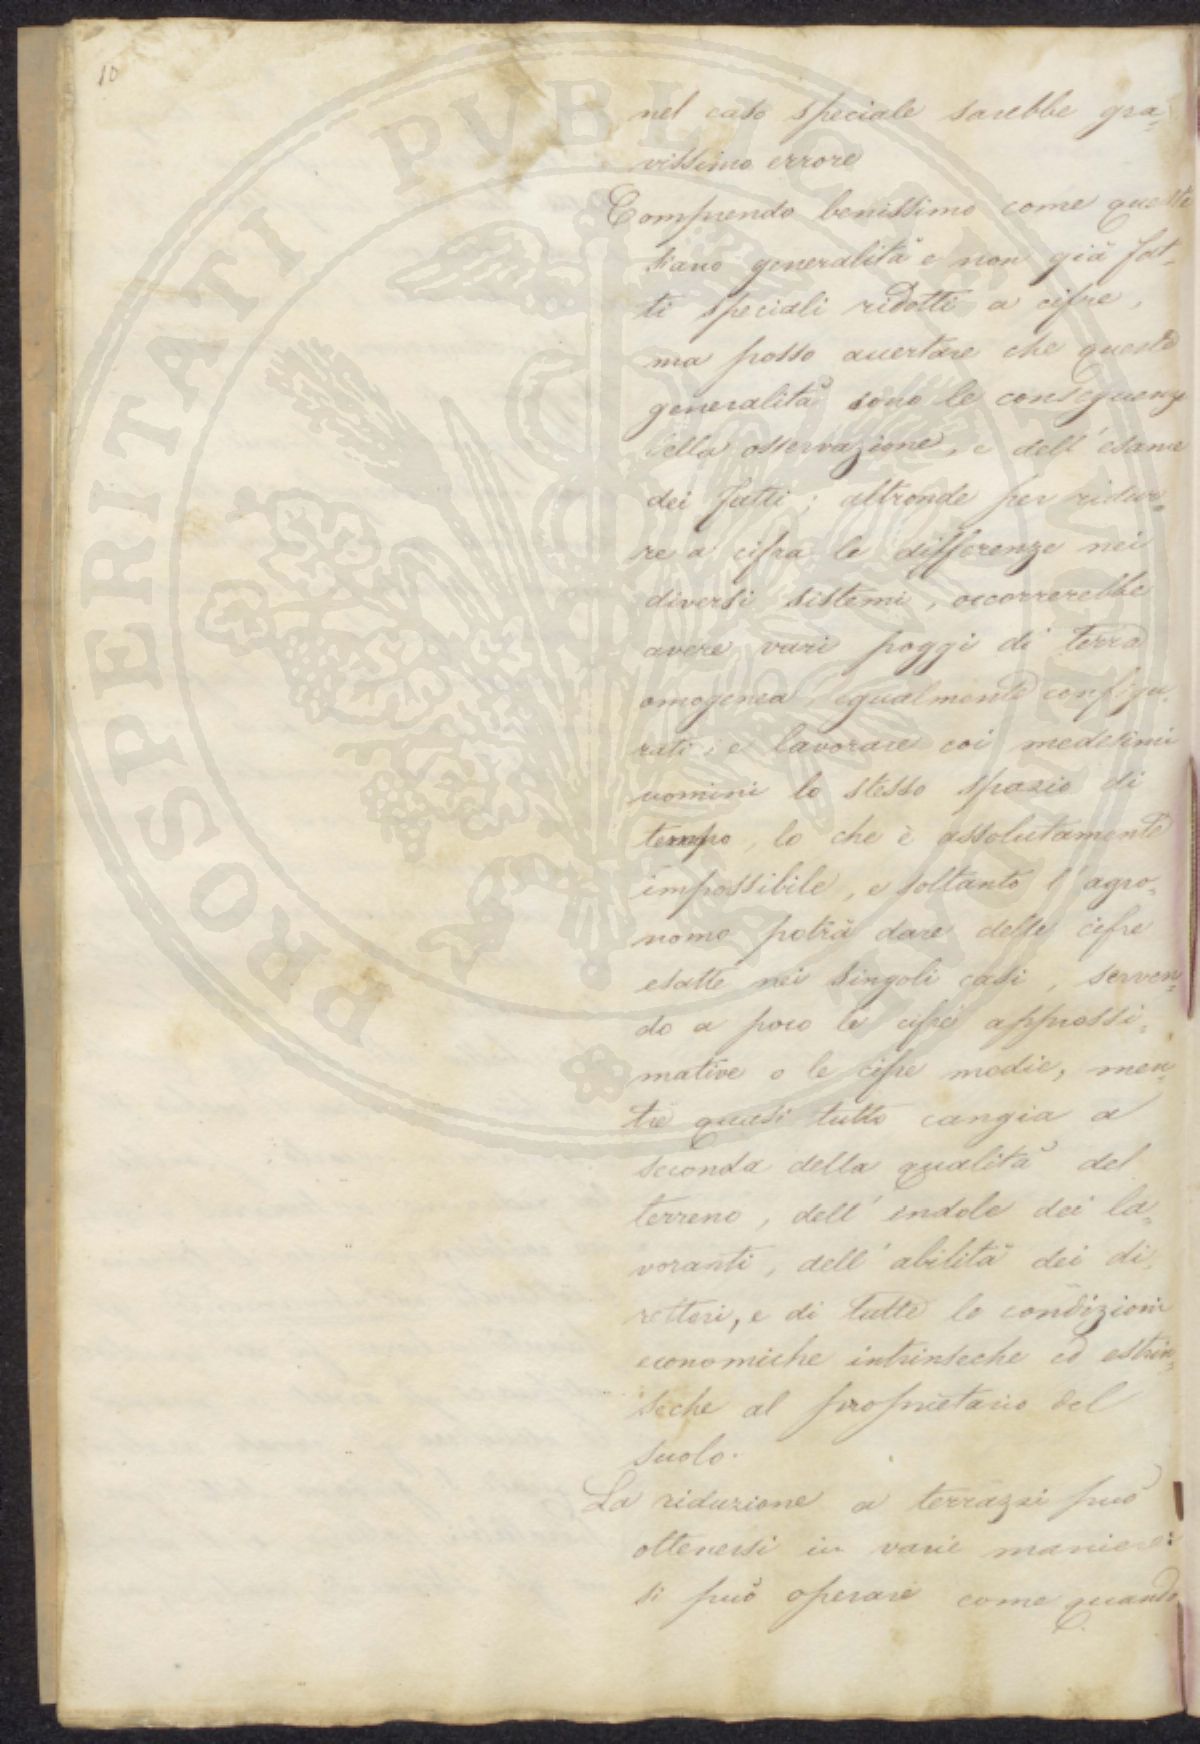 10
nel caso speciale sarebbe gra=
vissimo errore
Comprendo benissimo come queste
siano generalità e non già fat=
ti speciali ridotti a cifre,
ma posso accertare che queste
generalità sono le conseguenze
della osservazione, e dell'esame
dei fatti; altronde per ridur=
re a cifra le differenze nei
diversi sistemi, occorrerebbe
avere varii poggi di terra
omogenea, egualmente configu=
rati, e lavorare coi medesimi
uomini lo stesso spazio di
tempo, lo che è assolutamente
impossibile, e soltanto l'agro=
nomo potrà dare delle cifre
esatte nei singoli casi, serven=
do a poco le cifre approssi=
mative o le cifre medie, men=
tre quasi tutto cangia a
seconda della qualità del
terreno, dell'indole dei la=
voranti, dell'abilità dei di=
rettori, e di tutte le condizioni
economiche intrinseche ed estrin=
seche al proprietario del
suolo.
La riduzione a terrazzi può
ottenersi in varie maniere:
si può operare come quando
PROSPERITATI PUBLICAE AUGENDAE